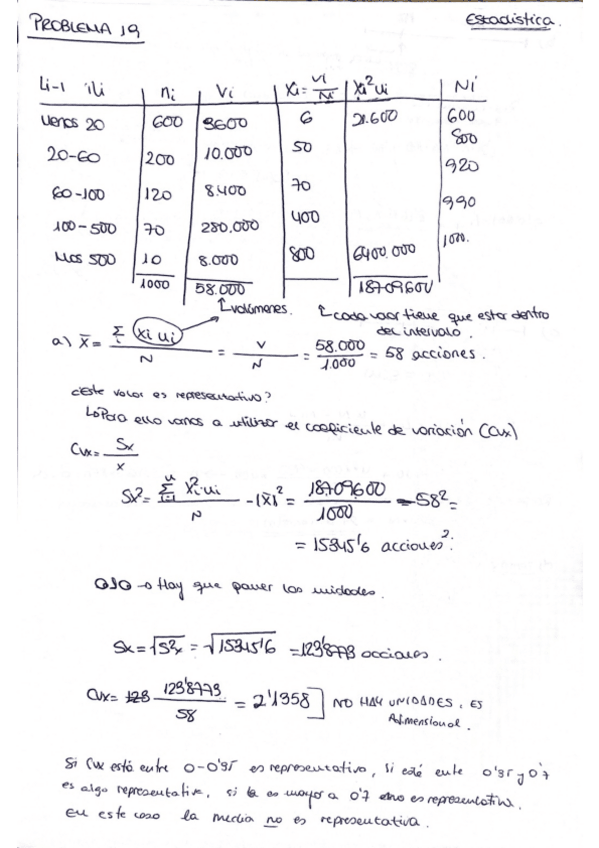 PROBLEMA 19
Estadistica.
Li-1 iLi ni Vi Xi = vi/Ni Xi²ui Ni
Menos 20 600 3600 6 21.600 600
20-60 200 10.000 50 800
60-100 120 8.400 70 920
100-500 70 280.000 400 990
Mas 500 10 8.000 800 6400.000 1000.
1000 58.000 18709600
↳volúmenes.
↳cada valor tiene que estar dentro
del intervalo.
a) x̄ = Σ xi ui / N = V / N = 58.000 / 1.000 = 58 acciones.
¿Este valor es representativo?
↳Para ello vamos a utilizar el coeficiente de variación (CVx)
CVx = Sx / x
Sx² = Σ xi² · ui / N - (x̄)² = 18709600 / 1000 - 58² =
= 15345'6 acciones².
OJO → Hay que poner las unidades.
Sx = √S²x = √15345'6 = 123'8773 acciones.
CVx = 123'8773 / 58 = 2'1358 ] NO HAY UNIDADES, ES
Adimensional.
Si CVx está entre 0-0'35 es representativo, si esté entre 0'35 y 0'7
es algo representativa, si es mayor a 0'7 no es representativa.
En este caso la media no es representativa.